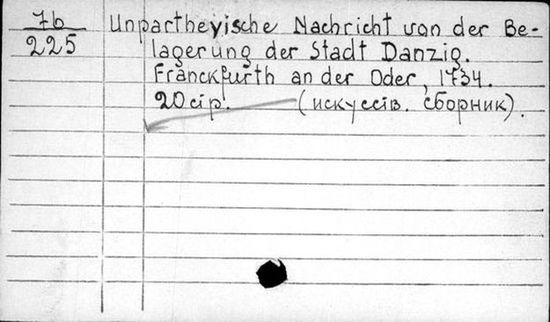 7b Unpartheyische Nachricht von der Be-
225 lagerung der Stadt Danzig.
Franckfurth an der Oder, 1734.
20 стр. (искусств. сборник).